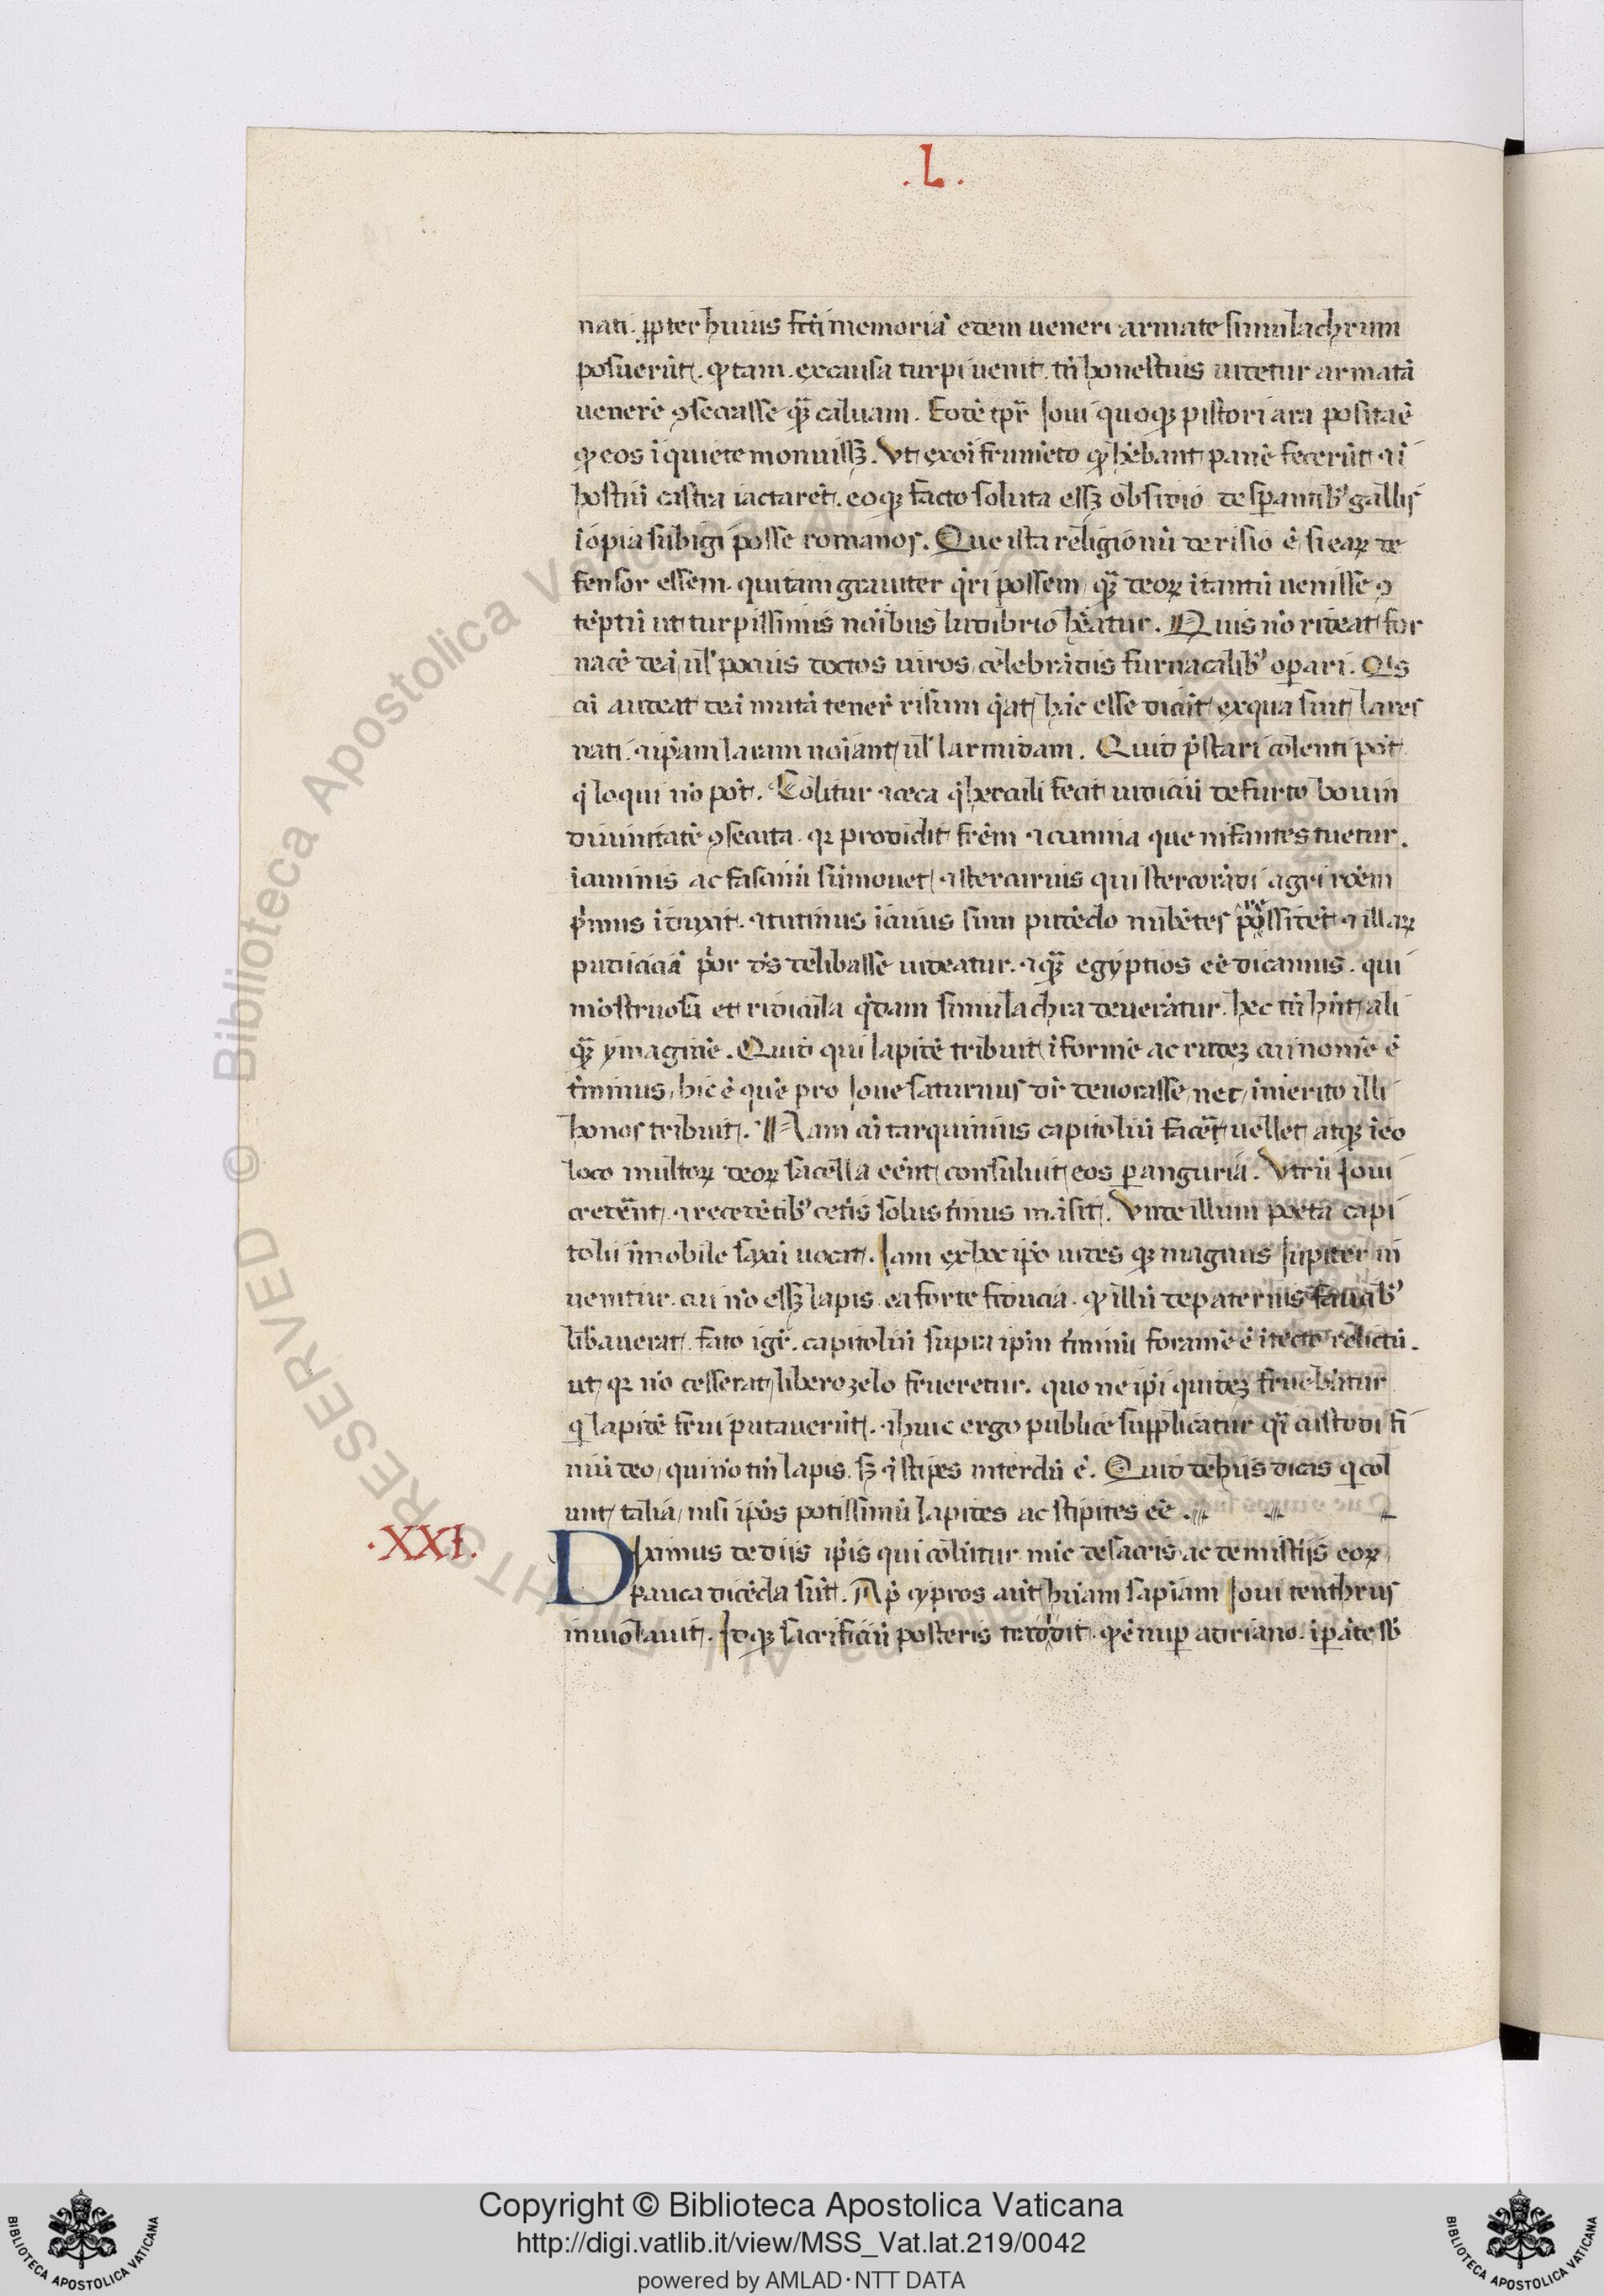 .L.
nati. ꝓpter huius fc̄i memoriā edem ueneri armate simulachrum
posuerūt. qd tam. ex causa turpi uenit. tn̄ honestius uidetur armatā
uenerē ꝯsecrasse qz̄ caluam. Eodē tpr̄ Ioui quoqz pistori ara posita ē
qd eos ī quiete monuissz. Vt ex oī frumēto qd hēbant panē facerūt ⁊ ī
hostiū castra iactarēt. eoqz facto soluta essz obsidio desperantibꝰ gallis
īopia subigi posse romanos. Que ista religionū derisio ē, si eaꝝ de
fensor essem. quid tam grauiter q̄ri possem, qz̄ deoꝝ ī tantū uenisse ꝯ
tēptū ut turpissimis noībus ludibrio hēatur. Quis nō rideat for
nacē deā, ul̄ pocius doctos uiros, celebrādis furnacalibꝰ operari. Qis
cū audeat deā mutā tenēr risum q̄at, hāc esse dicūt, ex qua sint lares
nati. ⁊ ip̄am laram noīant, ul̄ larundam. Quid p̄stari colenti pōt
q̄ loqui nō pōt. Colitur ⁊ ceca q̄ herculi fecit indiciū de furto bouin
diuinitatē ꝯsecuta. qz prodidit frēm ⁊ cunina que infantes tuetur.
ī cuninis ac fascinū sūmouet, ⁊ stercutius qui stercorādi agri rōem
p̄mus īduxit. ⁊ tutinus ī cuius sinu pudēdo nubētes p̄ssidēt ⁊ illaꝝ
pudiciciā p̄or ds̄ delibasse uideatur. ⁊ qz̄ egyptios eē dicamus. qui
mōstruosa et ridicula q̄dam simulachra deuerātur. hec tn̄ hn̄t ali
qz̄ ymaginē. Quid qui lapidē tribuit īformē ac rudez cui nomē ē
t̄minus, hic ē quē pro Ioue saturnus dr̄ deuorasse, nec, īmerito illi
honos tribuit. Nam cū tarquinius capitoliū facēt uellet, atqz ī eo
loco multoꝝ deoꝝ sacella eēnt, consuluit eos per auguria. Vtrū Ioui
cederēnt ⁊ recedētibꝰ cet̄is solus t̄minus māsit. Vnde illum poeta capi
tolii īmobile saxū uocat. Iam ex hoc ip̄o uides qz magnus Iupiter in
uenitur. cui nō essz lapis. ea forte fiducia. qd illū de paternis faucibꝰ
libauerat. facto igr̄. capitoliū supra ip̄m t̄minū foramē ē ī tecto relictū.
ut, qz nō cesserat, libero zelo frueretur. quo ne ip̄i quidez fruebātur
q̄ lapidē frui putauerūt. ⁊ huic ergo publice supplicatur q̄i custodi fi
niū deo, qui nō tm̄ lapis. sz ⁊ stipes interdū ē. Quid de hiis dicas q̄ col
unt, talia, nisi ip̄os potissimū lapides ac stipites eē
.XXI.
Diximus de diis ip̄is qui colūtur. nūc de sacris ac de mistiis eoꝝ
pauca dicēda sūt. Ap̄ cypros
inuiolauit. Idqz sacrificiū posteris tradidit. qd ē nuper adriano. īperāte sb̄
Copyright © Biblioteca Apostolica Vaticana
http://digi.vatlib.it/view/MSS_Vat.lat.219/0042
powered by AMLAD·NTT DATA